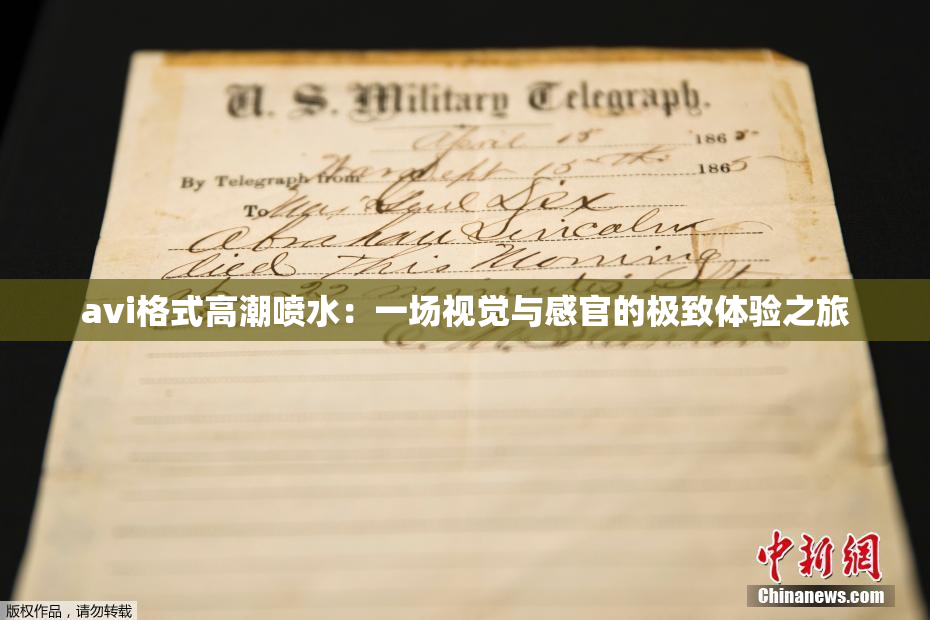 U. S. Military Telegraph.
April 15 1865
By Telegraph from War Dept 15th 1865
To Maj Genl Dix
Abraham Lincoln
died This Morning
at 22 minutes after
avi格式高潮喷水：一场视觉与感官的极致体验之旅
E. M. Stanton
中新網
Chinanews.com
版权作品，请勿转载